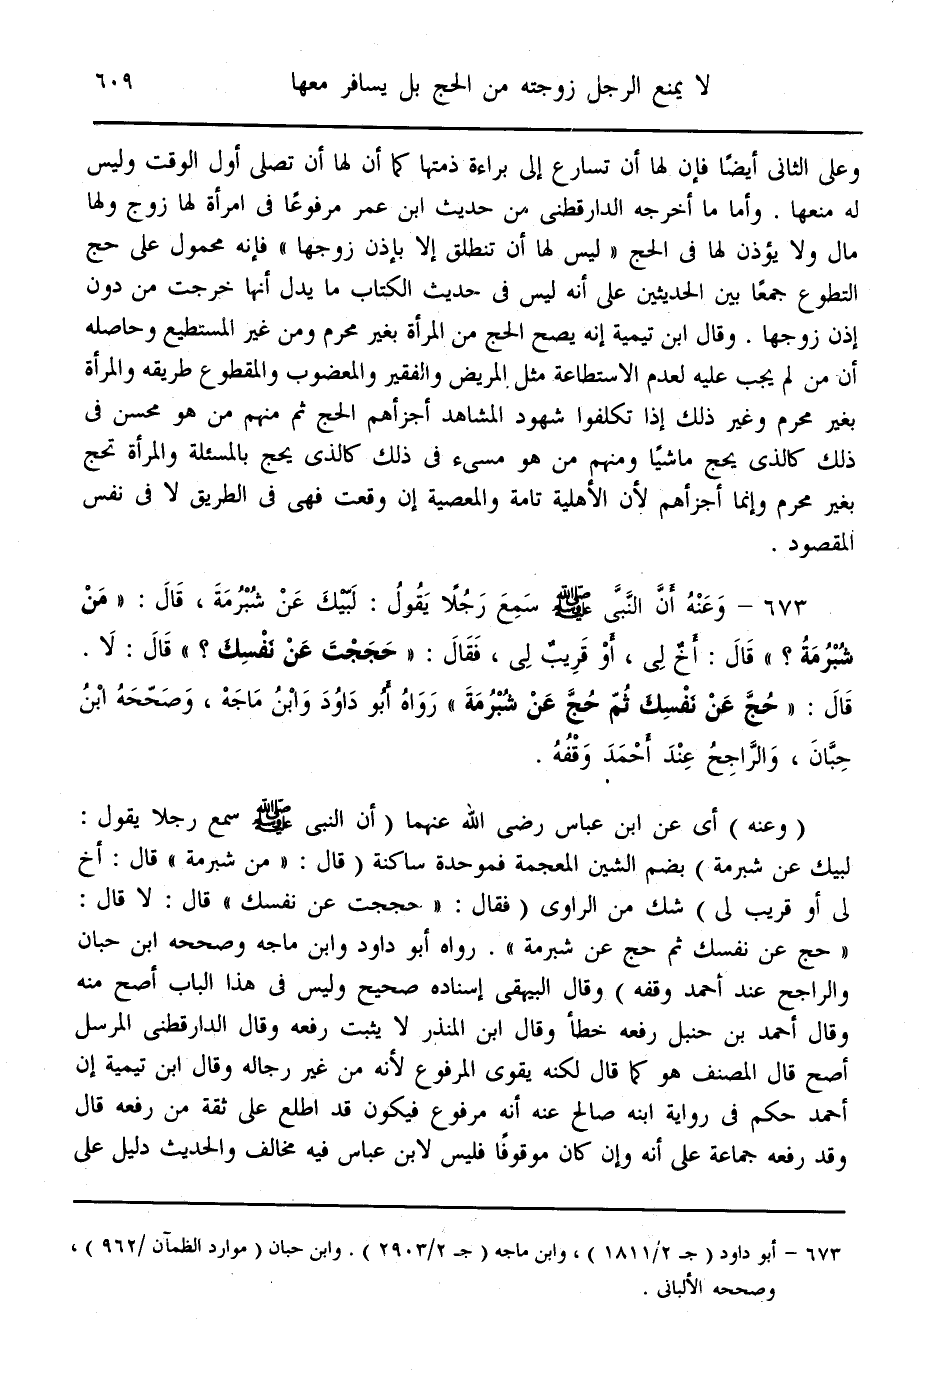 لا يمنع الرجل زوجته من الحج بل يسافر معها ٦٠٩
وعلى الثانى أيضًا فإن لها أن تسارع إلى براءة ذمتها كما أن لها أن تصلى أول الوقت وليس
له منعها . وأما ما أخرجه الدارقطنى من حديث ابن عمر مرفوعًا فى امرأة لها زوج ولها
مال ولا يؤذن لها فى الحج « ليس لها أن تنطلق إلا بإذن زوجها » فإنه محمول على حج
التطوع جمعًا بين الحديثين على أنه ليس فى حديث الكتاب ما يدل أنها خرجت من دون
إذن زوجها . وقال ابن تيمية إنه يصح الحج من المرأة بغير محرم ومن غير المستطيع وحاصله
أن من لم يجب عليه لعدم الاستطاعة مثل المريض والفقير والمعضوب والمقطوع طريقه والمرأة
بغير محرم وغير ذلك إذا تكلفوا شهود المشاهد أجزأهم الحج ثم منهم من هو محسن فى
ذلك كالذى يحج ماشيًا ومنهم من هو مسىء فى ذلك كالذى يحج بالمسئلة والمرأة تحج
بغير محرم وإنما أجزأهم لأن الأهلية تامة والمعصية إن وقعت فهى فى الطريق لا فى نفس
المقصود .
٦٧٣ – وَعَنْهُ أَنَّ النَّبىَّ ﷺ سَمِعَ رَجُلًا يَقُولُ : لَبَّيْكَ عَنْ شُبْرُمَةَ ، قَالَ : « مَنْ
شُبْرُمَةُ ؟ » قَالَ : أَخٌ لِى ، أَوْ قَرِيبٌ لِى ، فَقَالَ : « حَجَجْتَ عَنْ نَفْسِكَ ؟ » قَالَ : لَا .
قَالَ : « حُجَّ عَنْ نَفْسِكَ ثُمّ حُجَّ عَنْ شُبْرُمَةَ » رَوَاهُ أَبُو دَاوُدَ وَابْنُ مَاجَهْ ، وَصَحّحَهُ ابْنُ
حِبَّانَ ، وَالرَّاجِحُ عِنْدَ أَحْمَدَ وَقْفُهُ .
( وعنه ) أى عن ابن عباس رضى الله عنهما ( أن النبى ﷺ سمع رجلا يقول :
لبيك عن شبرمة ) بضم الشين المعجمة فموحدة ساكنة ( قال : « من شبرمة » قال : أخ
لى أو قريب لى ) شك من الراوى ( فقال : « حججت عن نفسك » قال : لا قال :
« حج عن نفسك ثم حج عن شبرمة » . رواه أبو داود وابن ماجه وصححه ابن حبان
والراجح عند أحمد وقفه ) وقال البيهقى إسناده صحيح وليس فى هذا الباب أصح منه
وقال أحمد بن حنبل رفعه خطأ وقال ابن المنذر لا يثبت رفعه وقال الدارقطنى المرسل
أصح قال المصنف هو كما قال لكنه يقوى المرفوع لأنه من غير رجاله وقال ابن تيمية إن
أحمد حكم فى رواية ابنه صالح عنه أنه مرفوع فيكون قد اطلع على ثقة من رفعه قال
وقد رفعه جماعة على أنه وإن كان موقوفًا فليس لابن عباس فيه مخالف والحديث دليل على
٦٧٣ – أبو داود ( جـ ١٨١١/٢ ) ، وابن ماجه ( جـ ٢٩٠٣/٢ ) . وابن حبان ( موارد الظمآن /٩٦٢ ) ،
وصححه الألبانى .